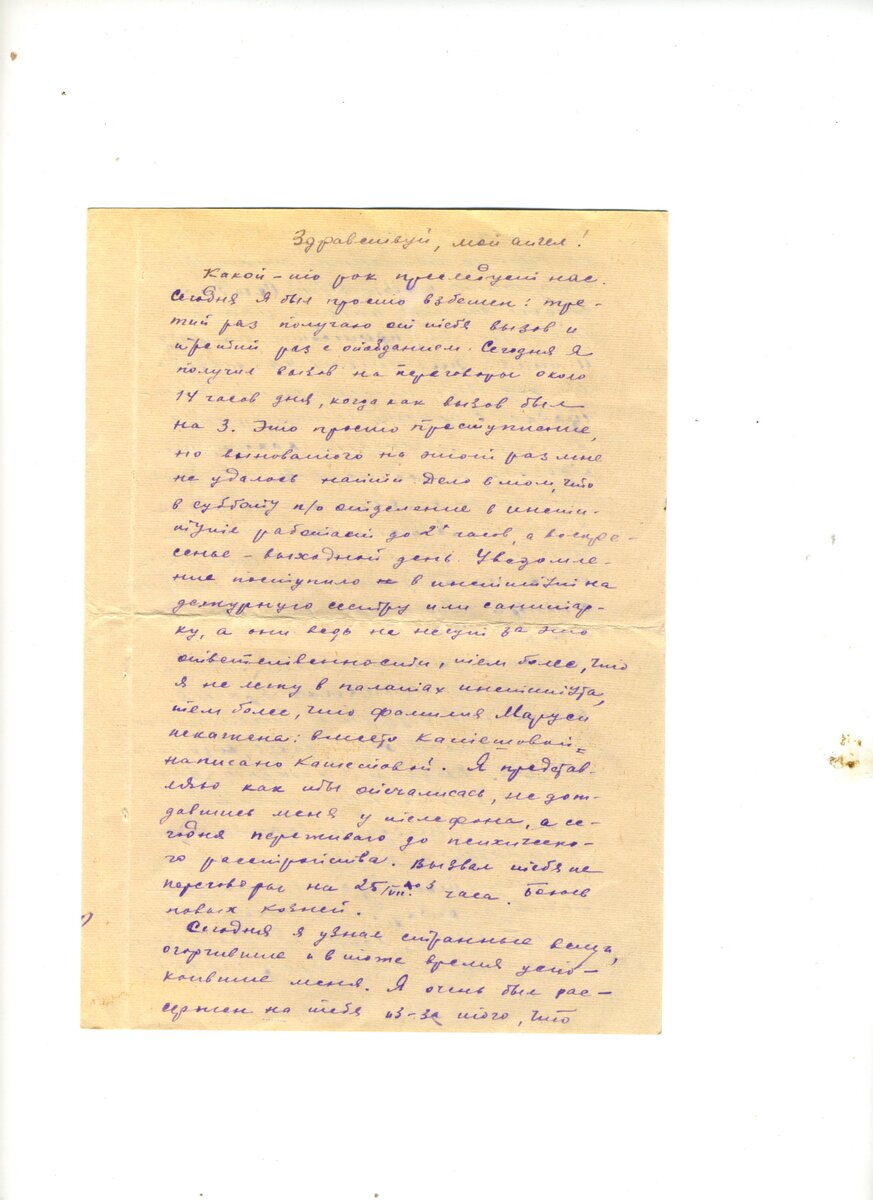 Здравствуй, мой ангел!
Какой-то рок преследует нас.
Сегодня я был просто взбешен: тре-
тий раз получаю от тебя вызов и
третий раз с опозданием. Сегодня я
получил вызов на переговоры около
14 часов дня, когда как вызов был
на 3. Это просто преступление,
но виноватого на этот раз мне
не удалось найти. Дело в том, что
в субботу п/о отделение в инсти-
туте работает до 2х часов, а воскре-
сенье - выходной день. Уведомле-
ние поступило в институт на
дежурную сестру или санитар-
ку, а они ведь не несут за это
ответственности, тем более, что
я не лежу в палатах института,
тем более, что фамилия Маруси
искажена: вместо
написано. Я представ-
ляю как ты опечалилась, не дож-
давшись меня у телефона, а се-
годня переживаю до психическо-
го расстройства. Вызвал тебя на
переговоры на 25/VII 3 часа. Боюсь
новых козней.
Сегодня я узнал странные вещи,
огорчившие и в тоже время успо-
коившие меня. Я очень был рас-
сержен на тебя из-за того, что